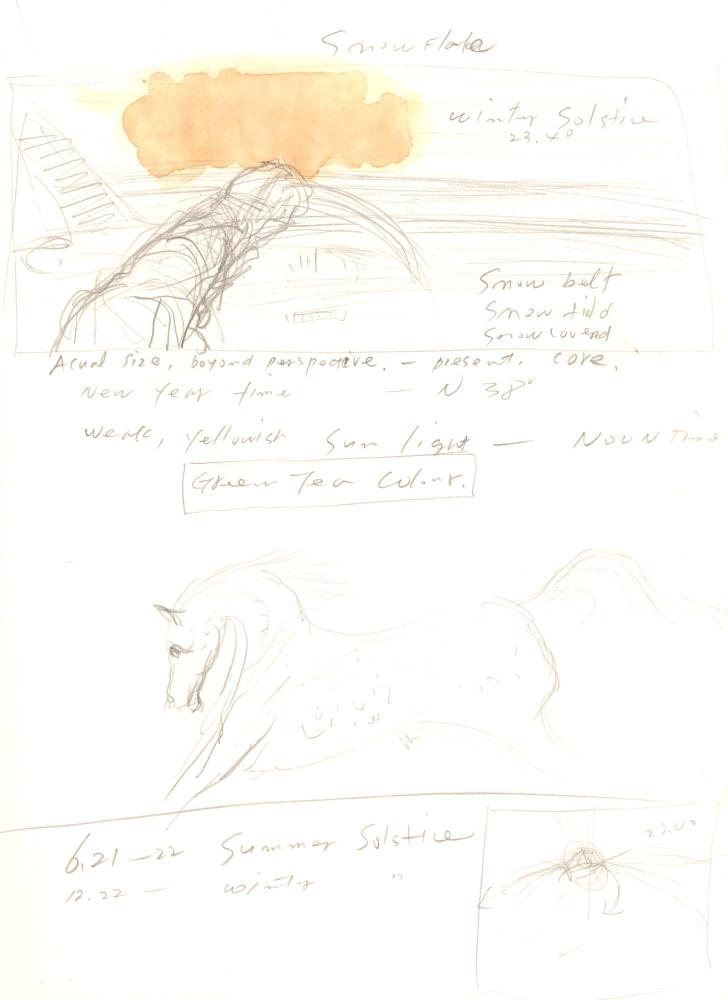 Snowflake
Winter Solstice
23.4°
Snow belt
Snow field
Snow covered
Acual size, boyond perspective. — present. core.
New Year time — N 38°
weak, Yellowish Sun light — NOON Time
Green Tea Colour.
6.21 — 22 Summer Solstice
12.22 — winty "
23.4°